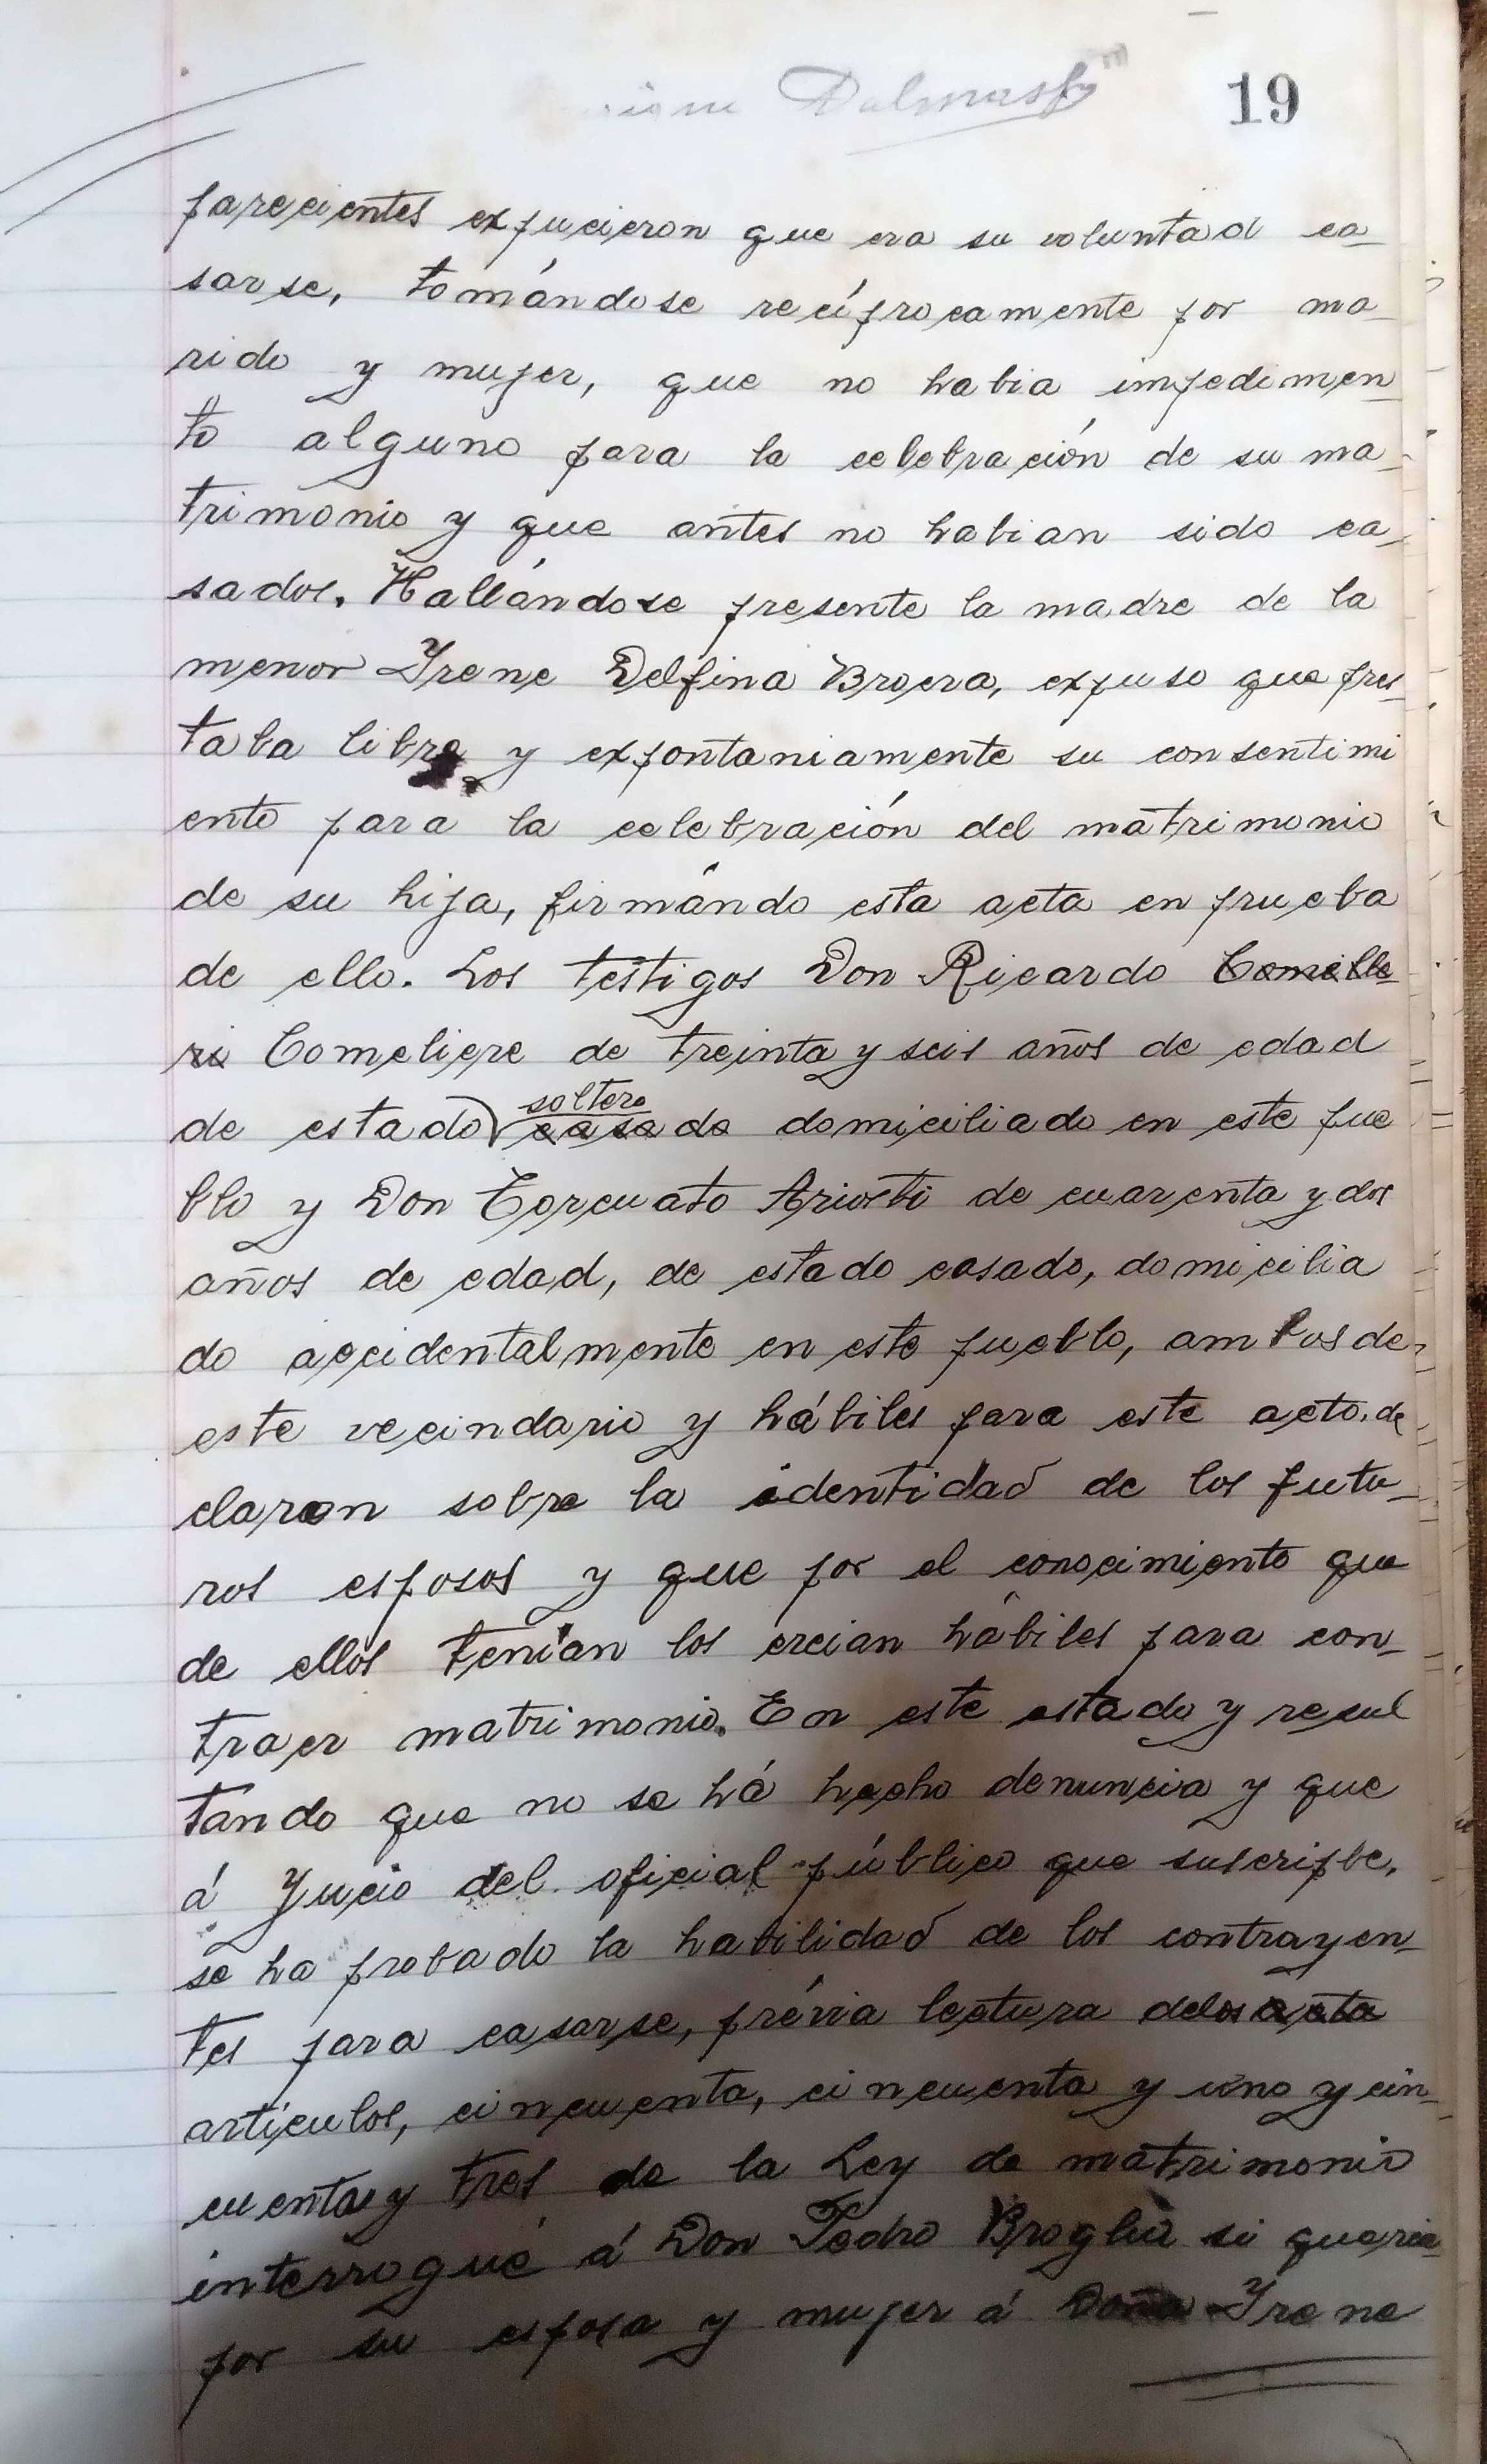 Dalmasso
19
parecientes expucieron que era su voluntad ca_
sarse, tomándose recíprocamente por ma_
rido y mujer, que no habia impedimen_
to alguno para la celebración de su ma_
trimonio y que antes no habian sido ca_
sados. Hallándose presente la madre de la
menor Irene Delfina Broera, expuso que pres_
taba libre y expontaniamente su consentimi
ento para la celebración del matrimonio
de su hija, firmándo esta acta en prueba
de ello. Los testigos Don Ricardo Comelle
ri Comeliere de treinta y seis años de edad
de estado soltero casado domiciliado en este pue
blo y Don Torcuato Ariosti de cuarenta y dos
años de edad, de estado casado, domicilia
do accidentalmente en este pueblo, ambos de
este vecindario y hábiles para este acto, de
claron sobre la identidad de los futu_
ros esposos y que por el conocimiento que
de ellos tenían los creian hábiles para con_
traer matrimonio. En este estado y resul
tando que no se há hecho denuncia y que
á Jucio del oficial público que suscripbe,
se ha probado la habilidad de los contrayen_
tes para casarse, prévia lectura delos acta
artículos, cincuenta, cincuenta y uno y cin_
cuenta y tres de la Ley de matrimonio
interrogué á Don Pedro Broglia si queria_
por su esposa y mujer á Doña Irene